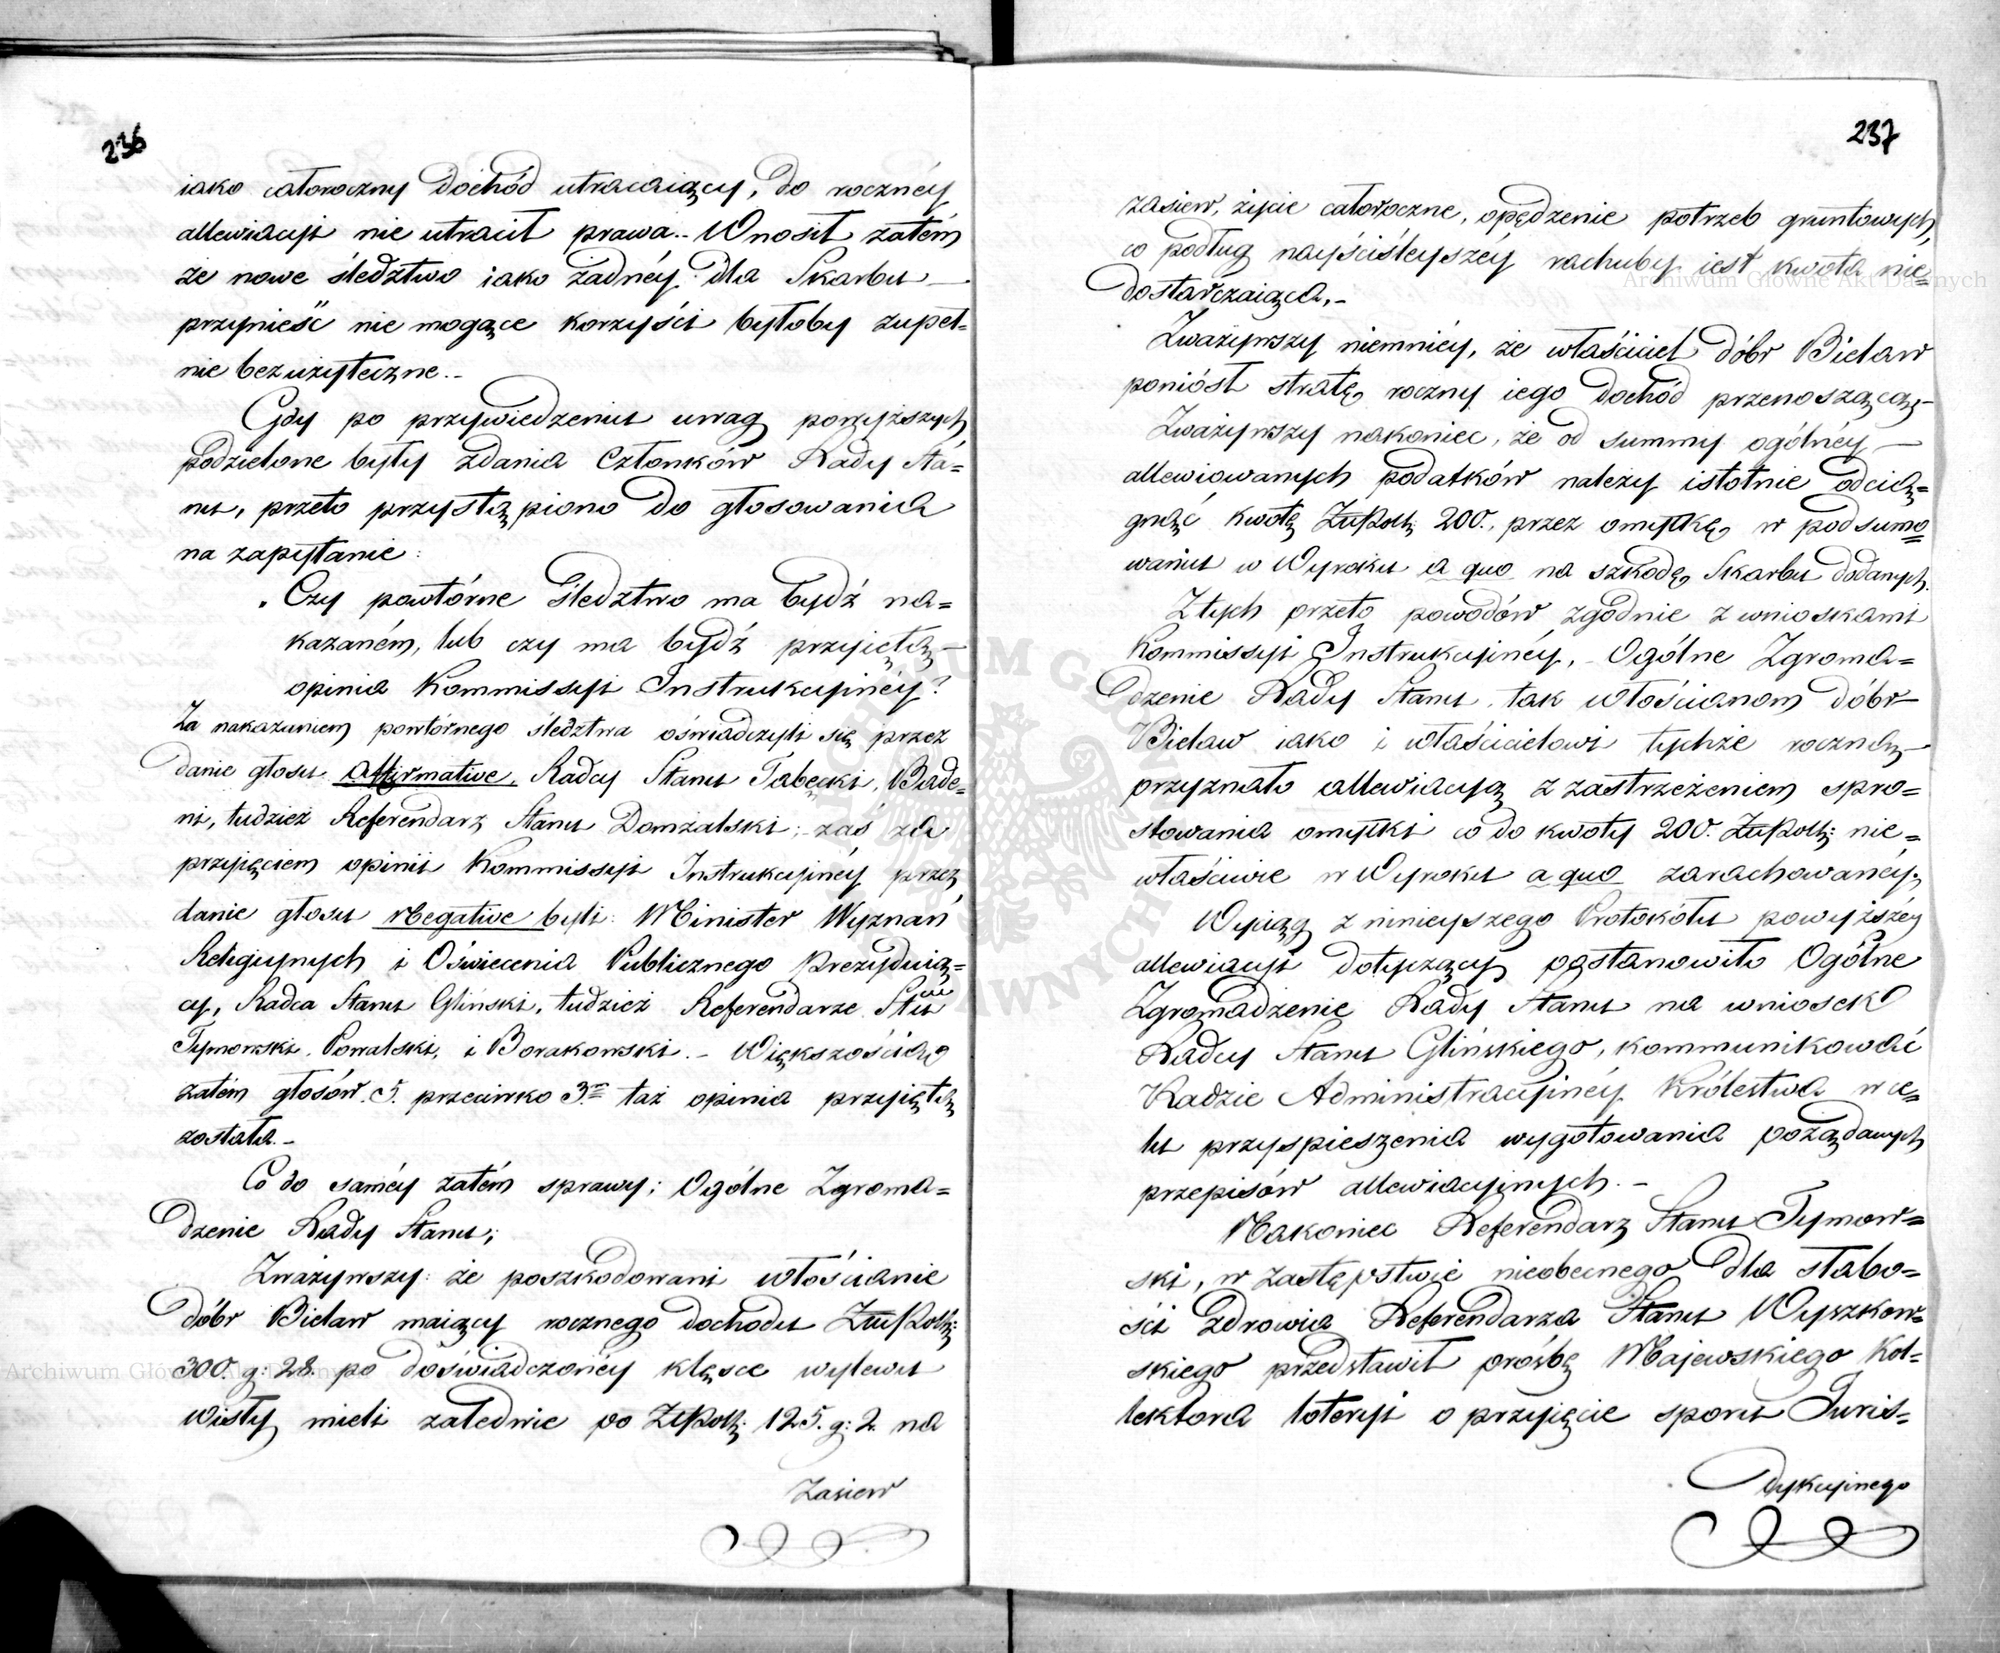 236
iako całoroczny dochód utracaiący, do rocznéy
allewiacyi nie utracił prawa.- Wnosił zatém
że nowe śledztwo iako żadnéy dla Skarbu —
przynieść nie mogące korzyści byłoby zupeł=
nie bezużyteczne.-
Gdy po przywiedzeniu uwag powyższych
podzielone były zdania Członków Rady Sta=
nu, przeto przystąpiono do głosowania
na zapytanie:
„Czy powtórne śledztwo ma bydź na=
kazaném, lub czy ma bydź przyiętą —
opinia Kommissyi Instrukcyinéy?
Za nakazaniem powtórnego śledztwa oświadczyli się przez
danie głosu affirmative, Radcy Stanu Tabęcki, Bade=
ni, tudzież Referendarz Stanu Domżalski; zaś za
przyięciem opinii Kommissyi Instrukcyinéy przez
danie głosu Negative byli: Minister Wyznań
Religiynych i Oświecenia Publicznego Prezyduią=
cy, Radca Stanu Gliński, tudzież Referendarze Stu
Tymowski, Powalski, i Borakowski.- Większością
zatém głosów 5. przeciwko 3m taż opinia przyiętą
została.-
Co do saméy zatém sprawy; Ogólne Zgroma=
dzenie Rady Stanu;
Zważywszy: że poszkodowani włościanie
dóbr Bielaw maiący rocznego dochodu ZłłPolk:
300. g: 28. po doświadczonéy klęsce wylewu
Wisły mieli zaledwie po ZłPolk: 125. g: 2. na
Zasiew
237
zasiew, życie całoroczne, opędzenie potrzeb gruntowych,
co podług nayściśleyszéy rachuby iest kwotą nie=
dostarczaiącą.-
Zważywszy niemniéy, że właściciel dóbr Bielaw
poniósł stratę, roczny iego dochód przenoszącą,-
Zważywszy nakoniec, że od summy ogólnéy —
allewiowanych podatków należy istotnie odcią=
gnąć kwotę ZłłPolk: 200., przez omyłkę, w podsumo=
waniu w Wyroku a quo na szkodę, Skarbu dodanych.
Z tych przeto powodów zgodnie z wnioskami
Kommissyi Instrukcyinéy, Ogólne Zgroma=
dzenie Rady Stanu, tak włościanom dóbr —
Bielaw iako i właścicielowi tychże roczną —
przyznało allewiacyą z zastrzeżeniem spro=
stowania omyłki co do kwoty 200. ZłłPolk: nie=
właściwie w Wyroku a quo zarachowanéy.
Wyciąg z ninieyszego Protokółu powyższéy
allewiacyi dotyczący postanowiło Ogólne
Zgromadzenie Rady Stanu na wniosek
Radcy Stanu Glińskiego, kommunikować
Radzie Administracyinéy Królestwa w ce=
lu przyspieszenia wygotowania pożądanych
przepisów allewiacyinych.-
Nakoniec Referendarz Stanu Tymow=
ski, w zastępstwie nieobecnego dla słabo=
ści zdrowia Referendarza Stanu Wyszkow=
skiego przedstawił prośbę Majewskiego Kol=
lektora loteryi o przyięcie sporu Juris=
dykcyinego